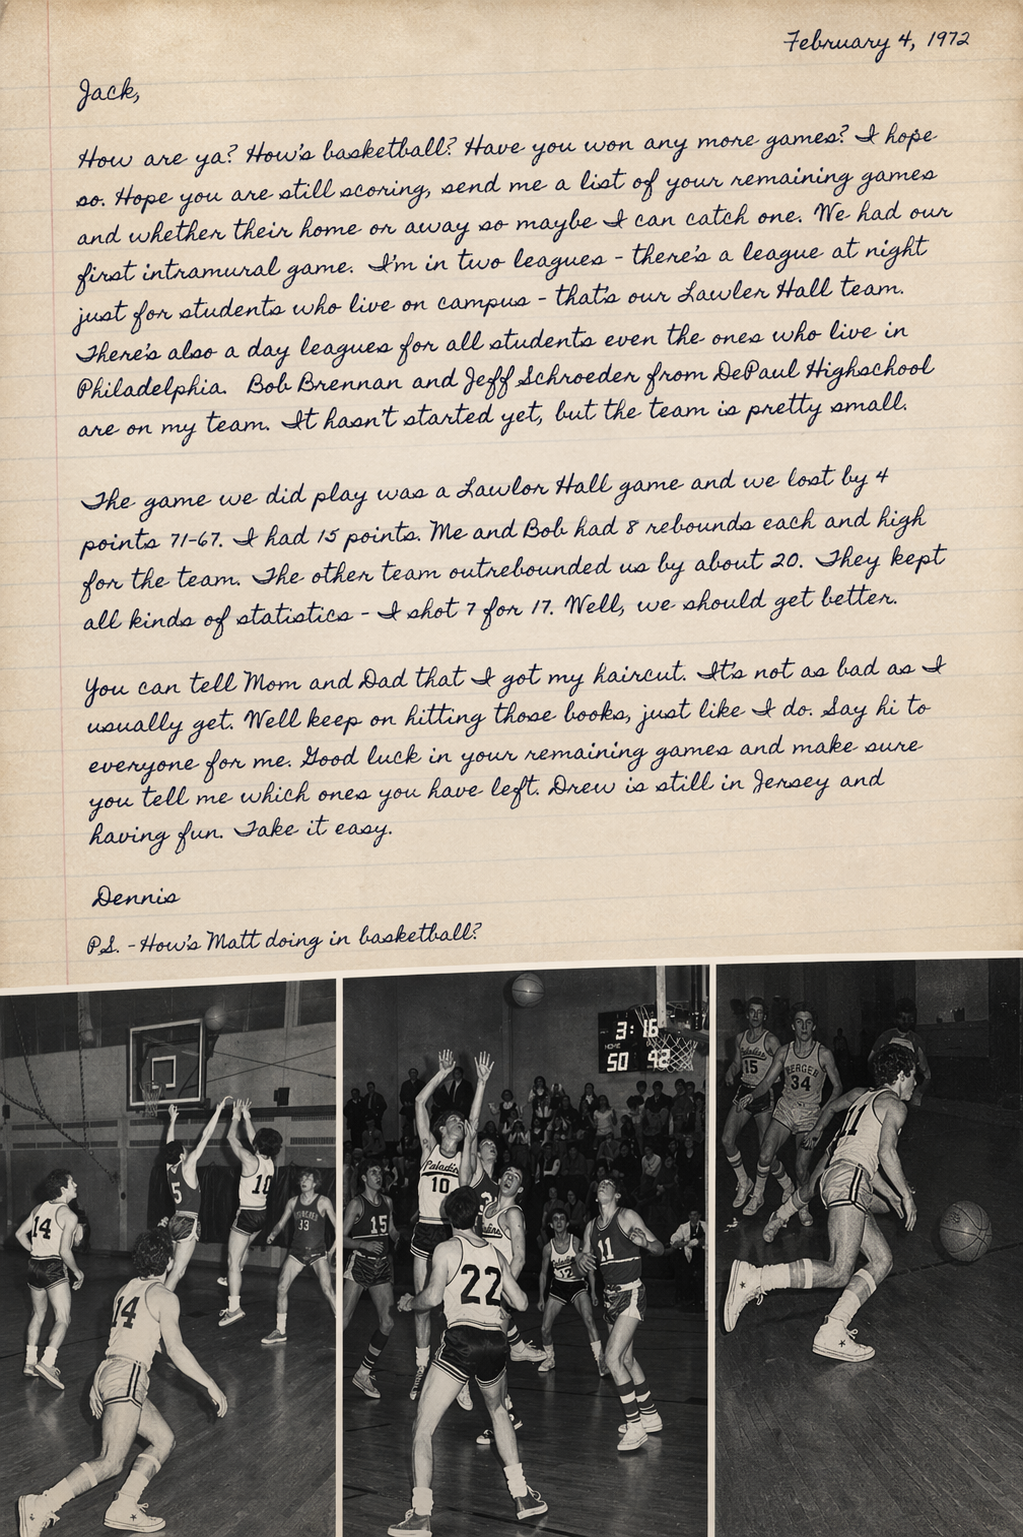 February 4, 1972
Jack,
How are ya? How's basketball? Have you won any more games? I hope
so. Hope you are still scoring, send me a list of your remaining games
and whether their home or away so maybe I can catch one. We had our
first intramural game. I'm in two leagues - there's a league at night
just for students who live on campus - that's our Lawler Hall team.
There's also a day leagues for all students even the ones who live in
Philadelphia. Bob Brennan and Jeff Schroeder from DePaul Highschool
are on my team. It hasn't started yet, but the team is pretty small.
The game we did play was a Lawlor Hall game and we lost by 4
points 71-67. I had 15 points. Me and Bob had 8 rebounds each and high
for the team. The other team outrebounded us by about 20. They kept
all kinds of statistics - I shot 7 for 17. Well, we should get better.
You can tell Mom and Dad that I got my haircut. It's not as bad as I
usually get. Well keep on hitting those books, just like I do. Say hi to
everyone for me. Good luck in your remaining games and make sure
you tell me which ones you have left. Drew is still in Jersey and
having fun. Take it easy.
Dennis
P.S. - How's Matt doing in basketball?
14
5
10
33
14
3:16
HOME
50 42
Paladins
10
15
22
12
11
15
BERGER
34
11